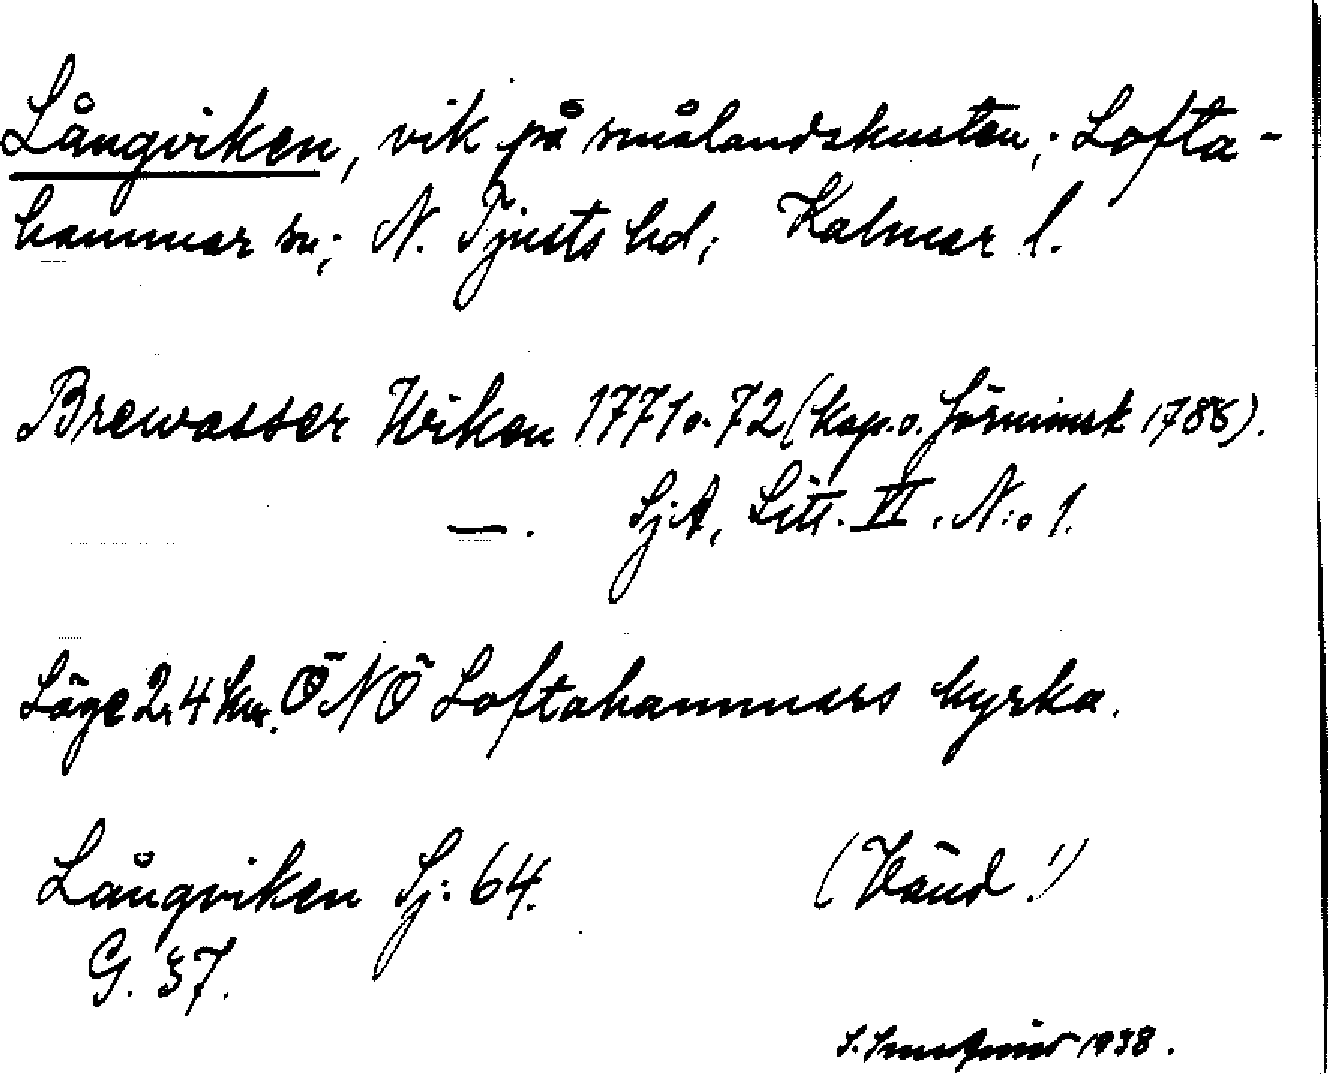 Långviken, vik på smålandskusten; Lofta-
hammar sn; N. Tjusts hd; Kalmar l.
Brewasser Wiken 1771 o. 72 (Kop. o. förminsk 1788).
—. SjA, Litt. VI. N:o 1.
Läge 2,4 km. ÖNÖ Loftahammars kyrka.
Långviken Sj: 64. (Vänd!)
G. 37.
S. 1938.